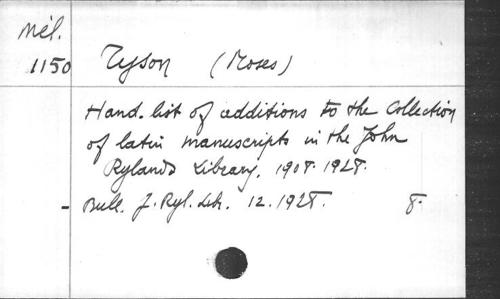 Mél.
1150 Tyson (Moses)
Hand-list of additions to the Collection
of latin manuscripts in the John
Rylands Library, 1908-1928.
- Bull. J. Ryl. Lib. 12. 1928. 8-